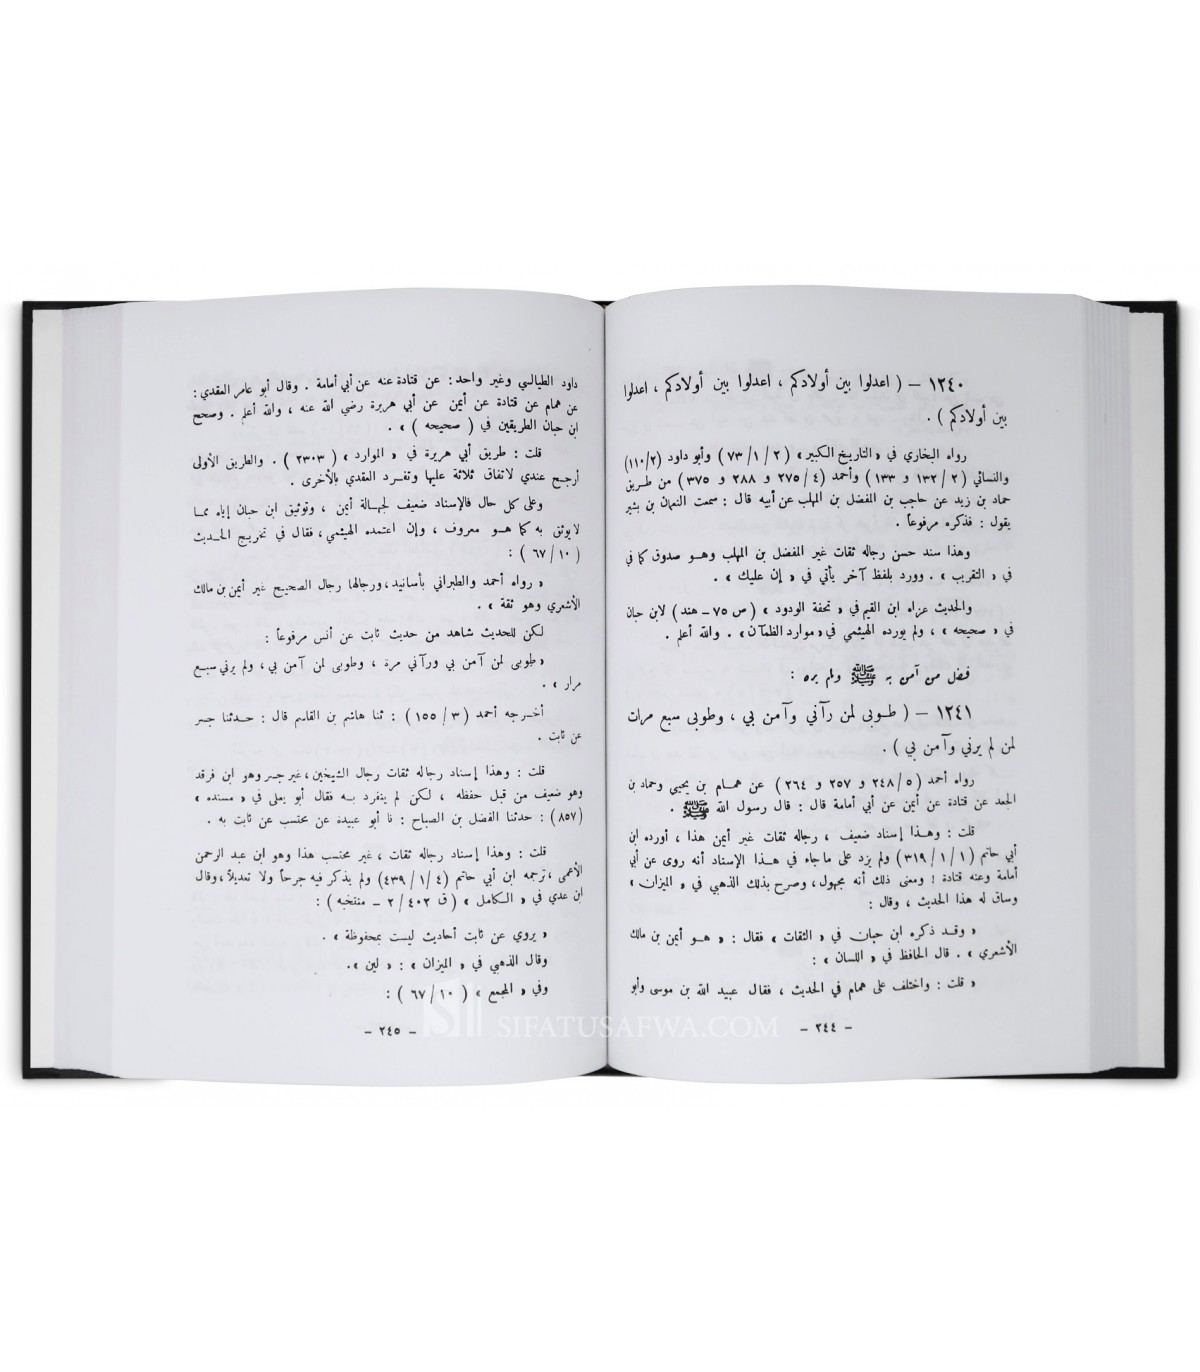 ١٢٤٠ – ( اعدلوا بين أولادكم ، اعدلوا بين أولادكم ، اعدلوا
بين أولادكم ) .
رواه البخاري في « التاريخ الكبير » ( ٢ / ١ / ٧٣ ) وأبو داود (٢/ ١١٠)
والنسائي ( ٢ / ١٣٢ و ١٣٣ ) وأحمد (٤/ ٢٧٥ و ٢٨٨ و ٣٧٥ ) من طريق
حماد بن زيد عن حاجب بن المفضل بن المهلب عن أبيه قال : سمعت النعمان بن بشير
يقول : فذكره مرفوعاً .
وهذا سند حسن رجاله ثقات غير المفضل بن المهلب وهو صدوق كما في
في « التقريب » . وورد بلفظ آخر يأتي في « إن عليك » .
والحديث عزاه ابن القيم في « تحفة الودود » ( ص ٧٥ – هند ) لابن حبان
في « صحيحه » ، ولم يورده الهيثمي في « موارد الظمآن » . والله أعلم .
فضل من آمن به ﷺ ولم يره :
١٢٤١ – ( طوبى لمن رآني وآمن بي ، وطوبى سبع مرات
لمن لم يرني وآمن بي ) .
رواه أحمد ( ٥ / ٢٤٨ و ٢٥٧ و ٢٦٤ ) عن همام بن يحيى وحماد بن
الجعد عن قتادة عن أيمن عن أبي أمامة قال : قال رسول الله ﷺ .
قلت : وهذا إسناد ضعيف ، رجاله ثقات غير أيمن هذا ، أورده ابن
أبي حاتم ( ١ / ١ / ٣١٩) ولم يزد على ماجاء في هذا الإسناد أنه روى عن أبي
أمامة وعنه قتادة ! ومعنى ذلك أنه مجهول، وصرح بذلك الذهبي في « الميزان »
وساق له هذا الحديث ، وقال :
« وقد ذكره ابن حبان في « الثقات » فقال : « هو أيمن بن مالك
الأشعري » . قال الحافظ في « اللسان » :
« قلت : واختلف على همام في الحديث ، فقال عبيد الله بن موسى وأبو
– ٢٤٤ –
داود الطيالسي وغير واحد : عن قتادة عنه عن أبي أمامة . وقال أبو عامر العقدي :
عن همام عن قتادة عن أيمن عن أبي هريرة رضي الله عنه ، والله أعلم . وصحح
ابن حبان الطريقين في ( صحيحه ) » .
قلت : طريق أبي هريرة في « الموارد » ( ٢٣٠٣ ) . والطريق الأولى
أرجح عندي لاتفاق ثلاثة عليها وتفرد العقدي بالأخرى .
وعلى كل حال فالإسناد ضعيف لجهالة أيمن ، وتوثيق ابن حبان إياه مما
لايوثق به كما هو معروف ، وإن اعتمده الهيثمي، فقال في تخريج الحديث
( ١٠ / ٦٧ ) :
« رواه أحمد والطبراني بأسانيد، ورجالها رجال الصحيح غير أيمن بن مالك
الأشعري وهو ثقة » .
لكن للحديث شاهد من حديث ثابت عن أنس مرفوعاً :
« طوبى لمن آمن بي ورآني مرة ، وطوبى لمن آمن بي، ولم يرني سبع
مرار » .
أخرجه أحمد ( ٣ / ١٥٥ ) : ثنا هاشم بن القاسم قال : حدثنا جسر
عن ثابت .
قلت : وهذا إسناد رجاله ثقات رجال الشيخين، غير جسر وهو ابن فرقد
وهو ضعيف من قبل حفظه ، لكن لم ينفرد به فقال أبو يعلى في « مسنده »
(٨٥٧) : حدثنا الفضل بن الصباح : نا أبو عبيدة عن محتسب عن ثابت به .
قلت : وهذا إسناد رجاله ثقات ، غير محتسب هذا وهو ابن عبد الرحمن
الأعمى ، ترجمه ابن أبي حاتم (٤ / ١ / ٤٣٩) ولم يذكر فيه جرحاً ولا تعديلاً، وقال
ابن عدي في « الكامل » ( ق ٤٠٢ / ٢ – منتخبه ) :
« يروي عن ثابت أحاديث ليست بمحفوظة » .
وقال الذهبي في « الميزان » : « لين ».
وفي « المجمع » ( ١٠ / ٦٧ ) :
– ٢٤٥ –
SIFATUSAFWA.COM